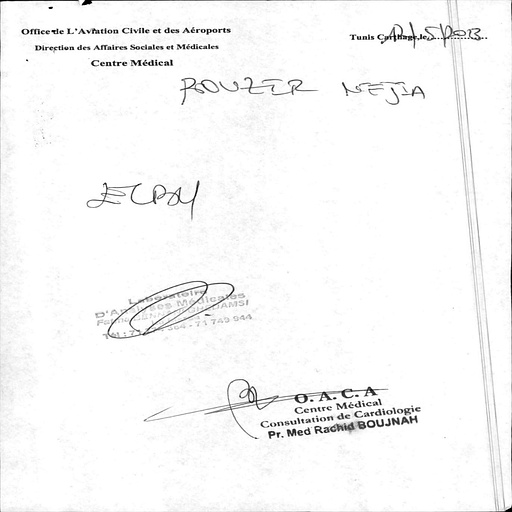 Office de L'Aviation Civile et des Aéroports
Direction des Affaires Sociales et Médicales
Centre Médical
Tunis Carthage,le
ROUZIR NEJIA
Laboratoire
D'Analyses Médicales
71 749 944
O. A. C. A
Centre Médical
Consultation de Cardiologie
Pr. Med Rachid BOUJNAH